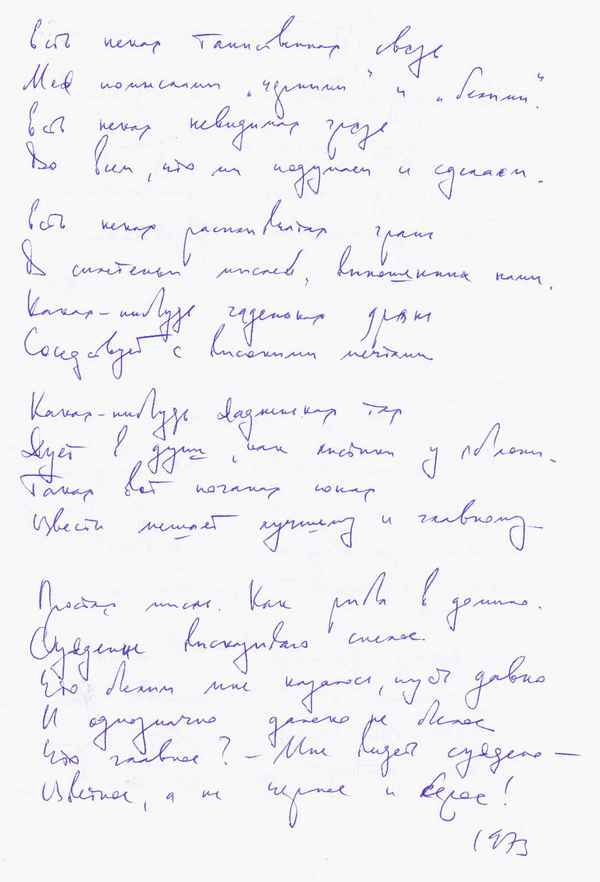 Есть некая таинственная связь
Меж помыслами „черными“ и „белыми“.
Есть некая невидимая грязь
Во всем, что мы подумаем и сделаем.
Есть некая расплывчатая грань
В сплетеньи мыслей, выношенных нами.
Какая-нибудь гаденькая дрянь
Соседствует с высокими мечтами
Какая-нибудь гаденькая тля
Дует в душе, как листики у яблони.
Такая вот поганая
Цвести мешает лучшему и главному
Простая мысль. Как рыба в домино.
Сужденье высказываю смелое
Что белым мне казалось, пусть давно
И однозначно далеко не белое
Что главное? – Мне видеть суждено –
Цветное, а не черное и белое!
1973